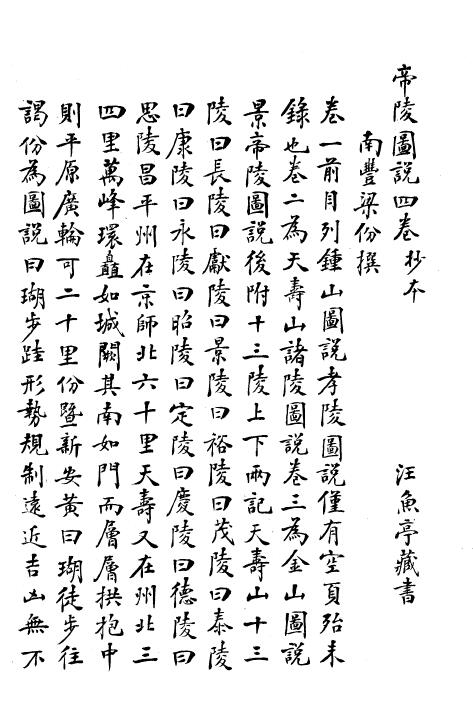 帝陵圖說四卷 抄本 汪魚亭藏書
南豐梁份撰
卷一前目列鍾山圖說孝陵圖說僅有空頁殆未
錄也卷二為天壽山諸陵圖說卷三為金山圖說
景帝陵圖說後附十三陵上下兩記天壽山十三
陵曰長陵曰獻陵曰景陵曰裕陵曰茂陵曰泰陵
曰康陵曰永陵曰昭陵曰定陵曰慶陵曰德陵曰
思陵昌平州在京師北六十里天壽又在州北三
四里萬峰環矗如城闕其南如門而層層拱抱中
則平原廣輪可二十里份暨新安黃曰瑚徒步往
謁份為圖說曰瑚步跬形勢規制遠近吉凶無不